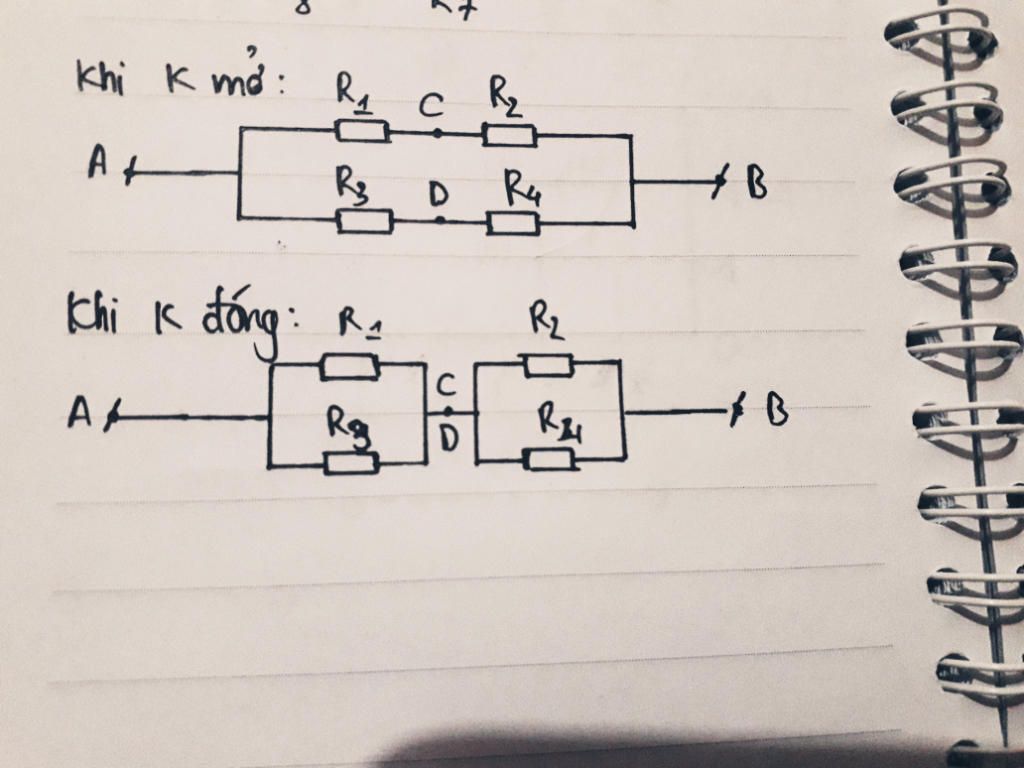 Khi K mở:
R1 C R2
A B
R3 D R4
Khi K đóng:
R1 R2
C
A B
R3 D R4